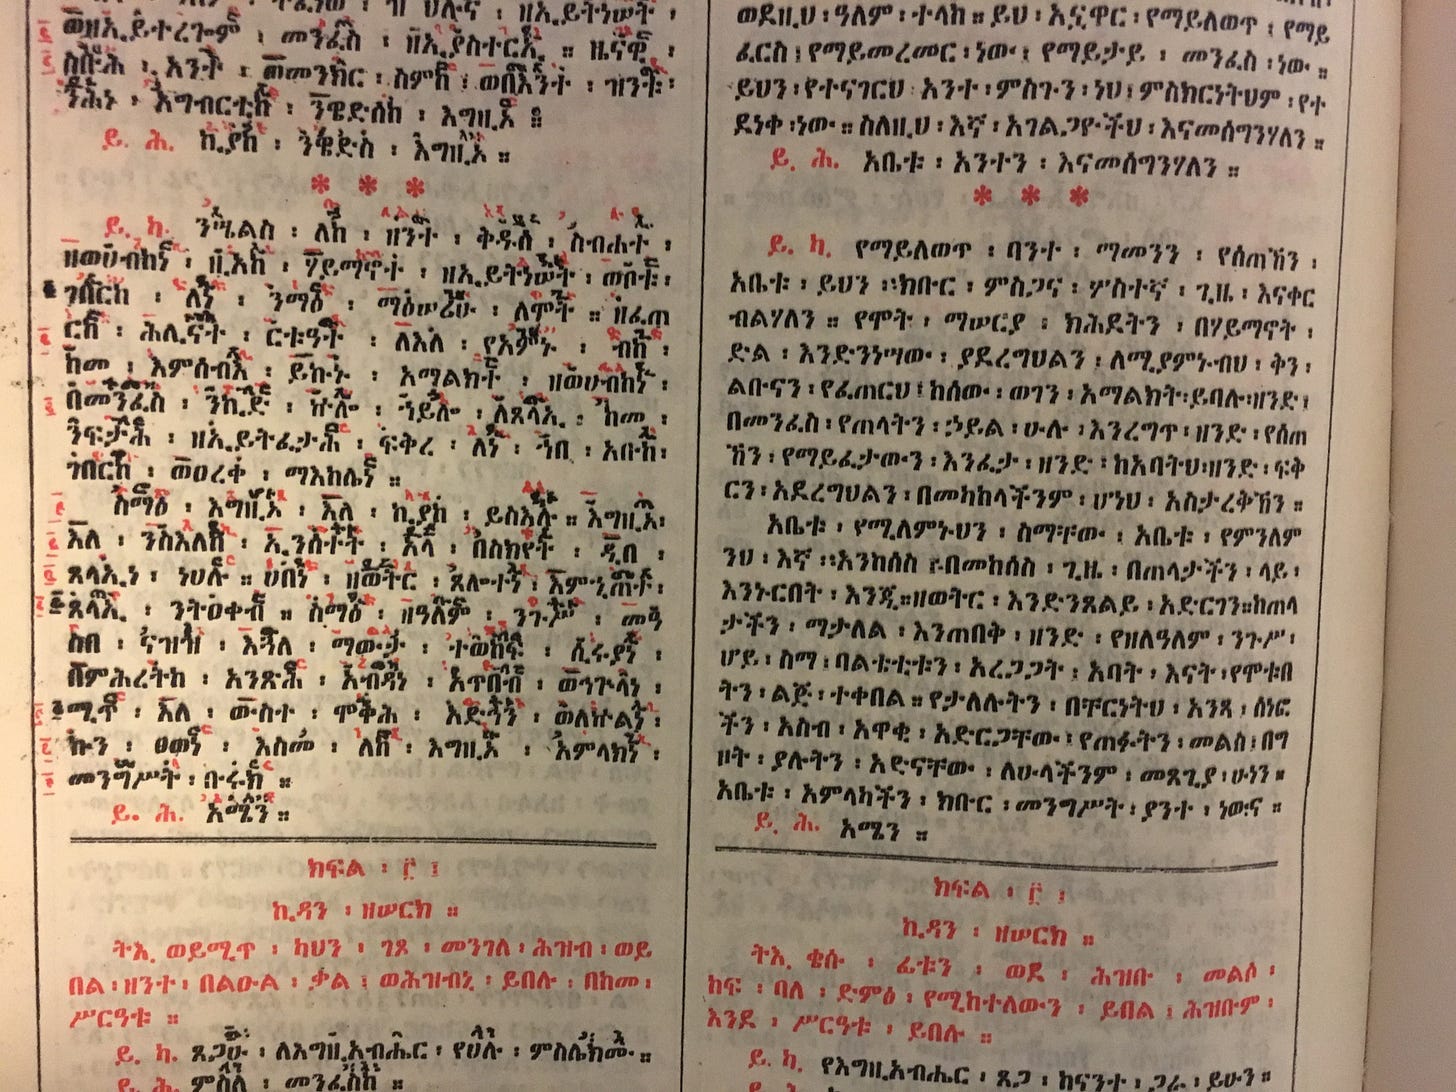 ወዘኢይተረጐም ፡ መንፈስ ፡ ዘኢያስተርኢ ። ዜናዊ ፡
ስቡሕ ፡ አንተ ፡ ወመንክር ፡ ስምከ ፡ ወበእንተ ፡ ዝንቱ ፡
ንሕነ ፡ አግብርቲከ ፡ ንዌድሰከ ፡ እግዚኦ ።
ይ. ሕ. ኪያከ ፡ ንዌድስ ፡ እግዚኦ ።
* * *
ይ. ካ. ንሤልስ ፡ ለከ ፡ ዘንተ ፡ ቅዱሰ ፡ ስብሐተ ፡
ዘወሀብከነ ፡ ዘአከ ፡ ሃይማኖተ ፡ ዘኢይትነሠት ፡ ወቦቱ ፡
ገበርከ ፡ ለነ ፡ ንማዕ ፡ ማዕሠሪሁ ፡ ለሞት ። ዘፈጠ
ርከ ፡ ሕሊናተ ፡ ርቱዓተ ፡ ለእለ ፡ የአምኑ ፡ ብከ ፡
ከመ ፡ እምሰብእ ፡ ይኩኑ ፡ አማልክተ ፡ ዘወሀብከነ ፡
በመንፈስ ፡ ንኪድ ፡ ኵሎ ፡ ኀይሎ ፡ ለጸላኢ ፡ ከመ ፡
ንፍታሕ ፡ ዘኢይትፈታሕ ፡ ፍቅረ ፡ ለነ ፡ ኀበ ፡ አቡከ ፡
ገበርከ ፡ ወዐረቀ ፡ ማእከሌነ ።
ስማዕ ፡ እግዚኦ ፡ እለ ፡ ኪያከ ፡ ይስእሉ ። እግዚኦ ፡
እለ ፡ ንስእለከ ፡ ኢንስተት ፡ አላ ፡ በስክየት ፡ ዲበ ፡
ጸላኢነ ፡ ነሀሉ ። ሀበነ ፡ ዘወትር ፡ ጸሎተነ ፡ እምኂጠተ ፡
ጸላኢ ፡ ንትዐቀብ ። ስማዕ ፡ ዘዓለም ፡ ንጉሥ ፡ መዓ
ስበ ፡ ናዝዝ ፡ እጓለ ፡ ማውታ ፡ ተወከፍ ፡ ሂሩያነ ፡
በምሕረትከ ፡ አንጽሕ ፡ አብዳነ ፡ አጥበብ ፡ ወኅጕላነ ፡
ሚጥ ፡ እለ ፡ ውስተ ፡ ሞቅሕ ፡ አድኅን ፡ ወለኵልነ ፡
ኩን ፡ ፀወነ ፡ እስመ ፡ ለከ ፡ እግዚኦ ፡ አምላክነ ፡
መንግሥት ፡ ቡሩክ ።
ይ. ሕ. አሜን ።
ክፍል ፡ ፫ ፤
ኪዳን ፡ ዘሠርክ ።
ትእ. ወይሚጥ ፡ ካህን ፡ ገጾ ፡ መንገለ ፡ ሕዝብ ፡ ወይ
በል ፡ ዘንተ ፡ በልዑል ፡ ቃል ፤ ወሕዝብኒ ፡ ይበሉ ፡ በከመ ፡
ሥርዓቱ ።
ይ. ካ. ጸጋሁ ፡ ለእግዚአብሔር ፡ የሀሉ ፡ ምስሌክሙ ።
ይ. ሕ. ምስለ ፡ መንፈስከ ።
ወደዚህ ፡ ዓለም ፡ ተላከ ። ይህ ፡ አኗዋር ፡ የማይለወጥ ፤ የማይ
ፈርስ ፤ የማይመረመር ፡ ነው ፤ የማይታይ ፡ መንፈስ ፡ ነው ።
ይህን ፡ የተናገርህ ፡ አንተ ፡ ምስጉን ፡ ነህ ፤ ምስክርነትህም ፡ የተ
ደነቀ ፡ ነው ። ስለዚህ ፡ እኛ ፡ አገልጋዮችህ ፡ እናመሰግንሃለን ።
ይ. ሕ. አቤቱ ፡ አንተን ፡ እናመሰግንሃለን ።
* * *
ይ. ካ. የማይለወጥ ፡ ባንተ ፡ ማመንን ፡ የሰጠኸን ፡
አቤቱ ፡ ይህን ፡ ክቡር ፡ ምስጋና ፡ ሦስተኛ ፡ ጊዜ ፡ እናቀር
ብልሃለን ። የሞት ፡ ማሠርያ ፡ ክሕደትን ፡ በሃይማኖት ፡
ድል ፡ እንድንነሣው ፡ ያደረግህልን ፤ ለሚያምኑብህ ፡ ቅን ፡
ልቡናን ፡ የፈጠርህ ፤ ከሰው ፡ ወገን ፡ አማልክት ፡ ይባሉ ፡ ዘንድ ፤
በመንፈስ ፡ የጠላትን ፡ ኃይል ፡ ሁሉ ፡ እንረግጥ ፡ ዘንድ ፡ የሰጠ
ኸን ፡ የማይፈታውን ፡ እንፈታ ፡ ዘንድ ፡ ከአባትህ ፡ ዘንድ ፡ ፍቅ
ርን ፡ አደረግህልን ፡ በመካከላችንም ፡ ሆነህ ፡ አስታረቅኸን ።
አቤቱ ፡ የሚለምኑህን ፡ ስማቸው ፡ አቤቱ ፡ የምንለም
ንህ ፡ እኛ ፡ አንከሰስ ፡ በመከሰስ ፡ ጊዜ ፡ በጠላታችን ፡ ላይ ፡
እንኑርበት ፡ እንጂ ። ዘወትር ፡ እንድንጸልይ ፡ አድርገን ። ከጠላ
ታችን ፡ ማታለል ፡ እንጠበቅ ፡ ዘንድ ፡ የዘለዓለም ፡ ንጉሥ ፡
ሆይ ፡ ስማ ፤ ባልቴቲቱን ፡ አረጋጋት ፤ አባት ፡ እናት ፡ የሞቱበ
ትን ፡ ልጅ ፡ ተቀበል ። የታለሉትን ፡ በቸርነትህ ፡ አንጻ ፤ ሰነፎ
ችን ፡ አስብ ፡ አዋቂ ፡ አድርጋቸው ፤ የጠፉትን ፡ መልስ ፤ በግ
ዞት ፡ ያሉትን ፡ አድናቸው ፡ ለሁላችንም ፡ መጸጊያ ፡ ሁነን ።
አቤቱ ፡ አምላካችን ፡ ክቡር ፡ መንግሥት ፡ ያንተ ፡ ነውና ።
ይ. ሕ. አሜን ።
ክፍል ፡ ፫ ፤
ኪዳን ፡ ዘሠርክ ።
ትእ. ቄሱ ፡ ፊቱን ፡ ወደ ፡ ሕዝቡ ፡ መልሶ ፡
ከፍ ፡ ባለ ፡ ድምፅ ፡ የሚከተለውን ፡ ይበል ፤ ሕዝቡም ፡
እንደ ፡ ሥርዓቱ ፡ ይበሉ ።
ይ. ካ. የእግዚአብሔር ፡ ጸጋ ፡ ከናንተ ፡ ጋራ ፡ ይሁን ።